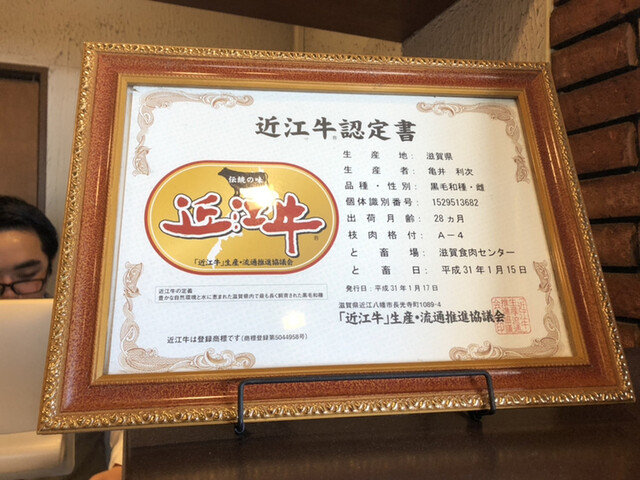 近江牛認定書
伝統の味
近江牛
「近江牛」生産・流通推進協議会
近江牛の定義
豊かな自然環境と水に恵まれた滋賀県内で最も長く飼育された黒毛和種
近江牛は登録商標です(商標登録第5044958号)
生産地: 滋賀県
生産者: 亀井 利次
品種・性別: 黒毛和種・雌
個体識別番号: 1529513682
出荷月齢: 28ヵ月
枝肉格付: A-4
と畜場: 滋賀食肉センター
と畜日: 平成31年1月15日
発行日:平成31年1月17日
滋賀県近江八幡市長光寺町1089-4
「近江牛」生産・流通推進協議会